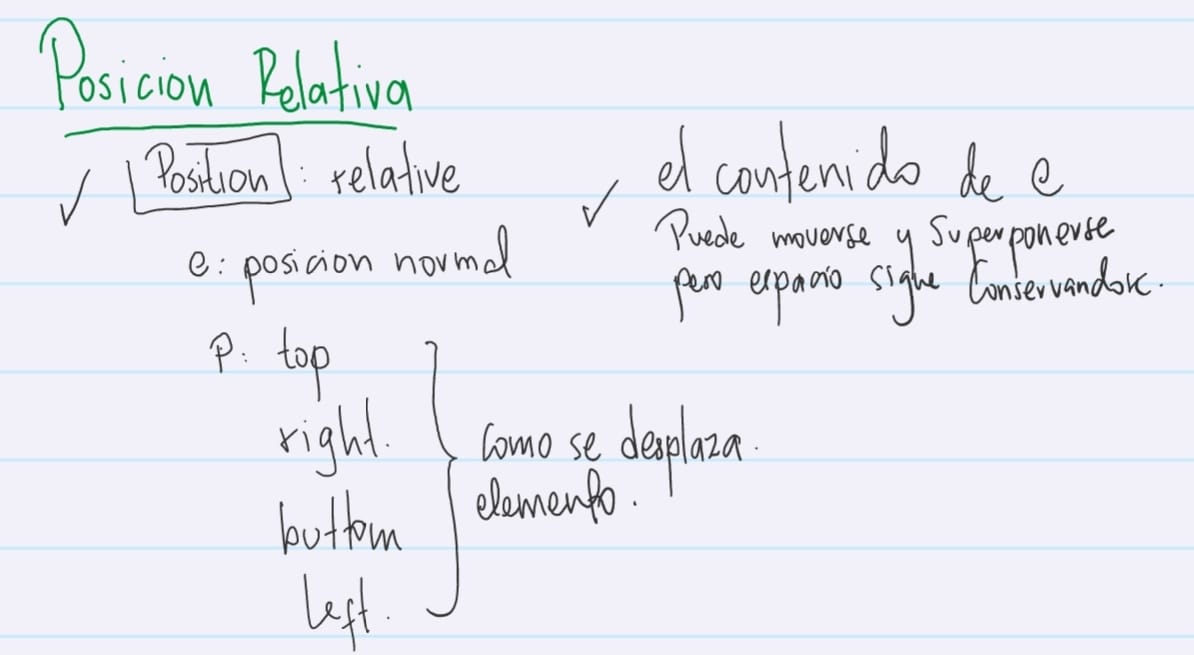 Posicion Relativa
Position : relative
e: posicion normal
P: top
right.
buttom
left.
Como se desplaza.
elemento.
el contenido de e
Puede moverse y Superponerse
pero espacio sigue Conservandose.